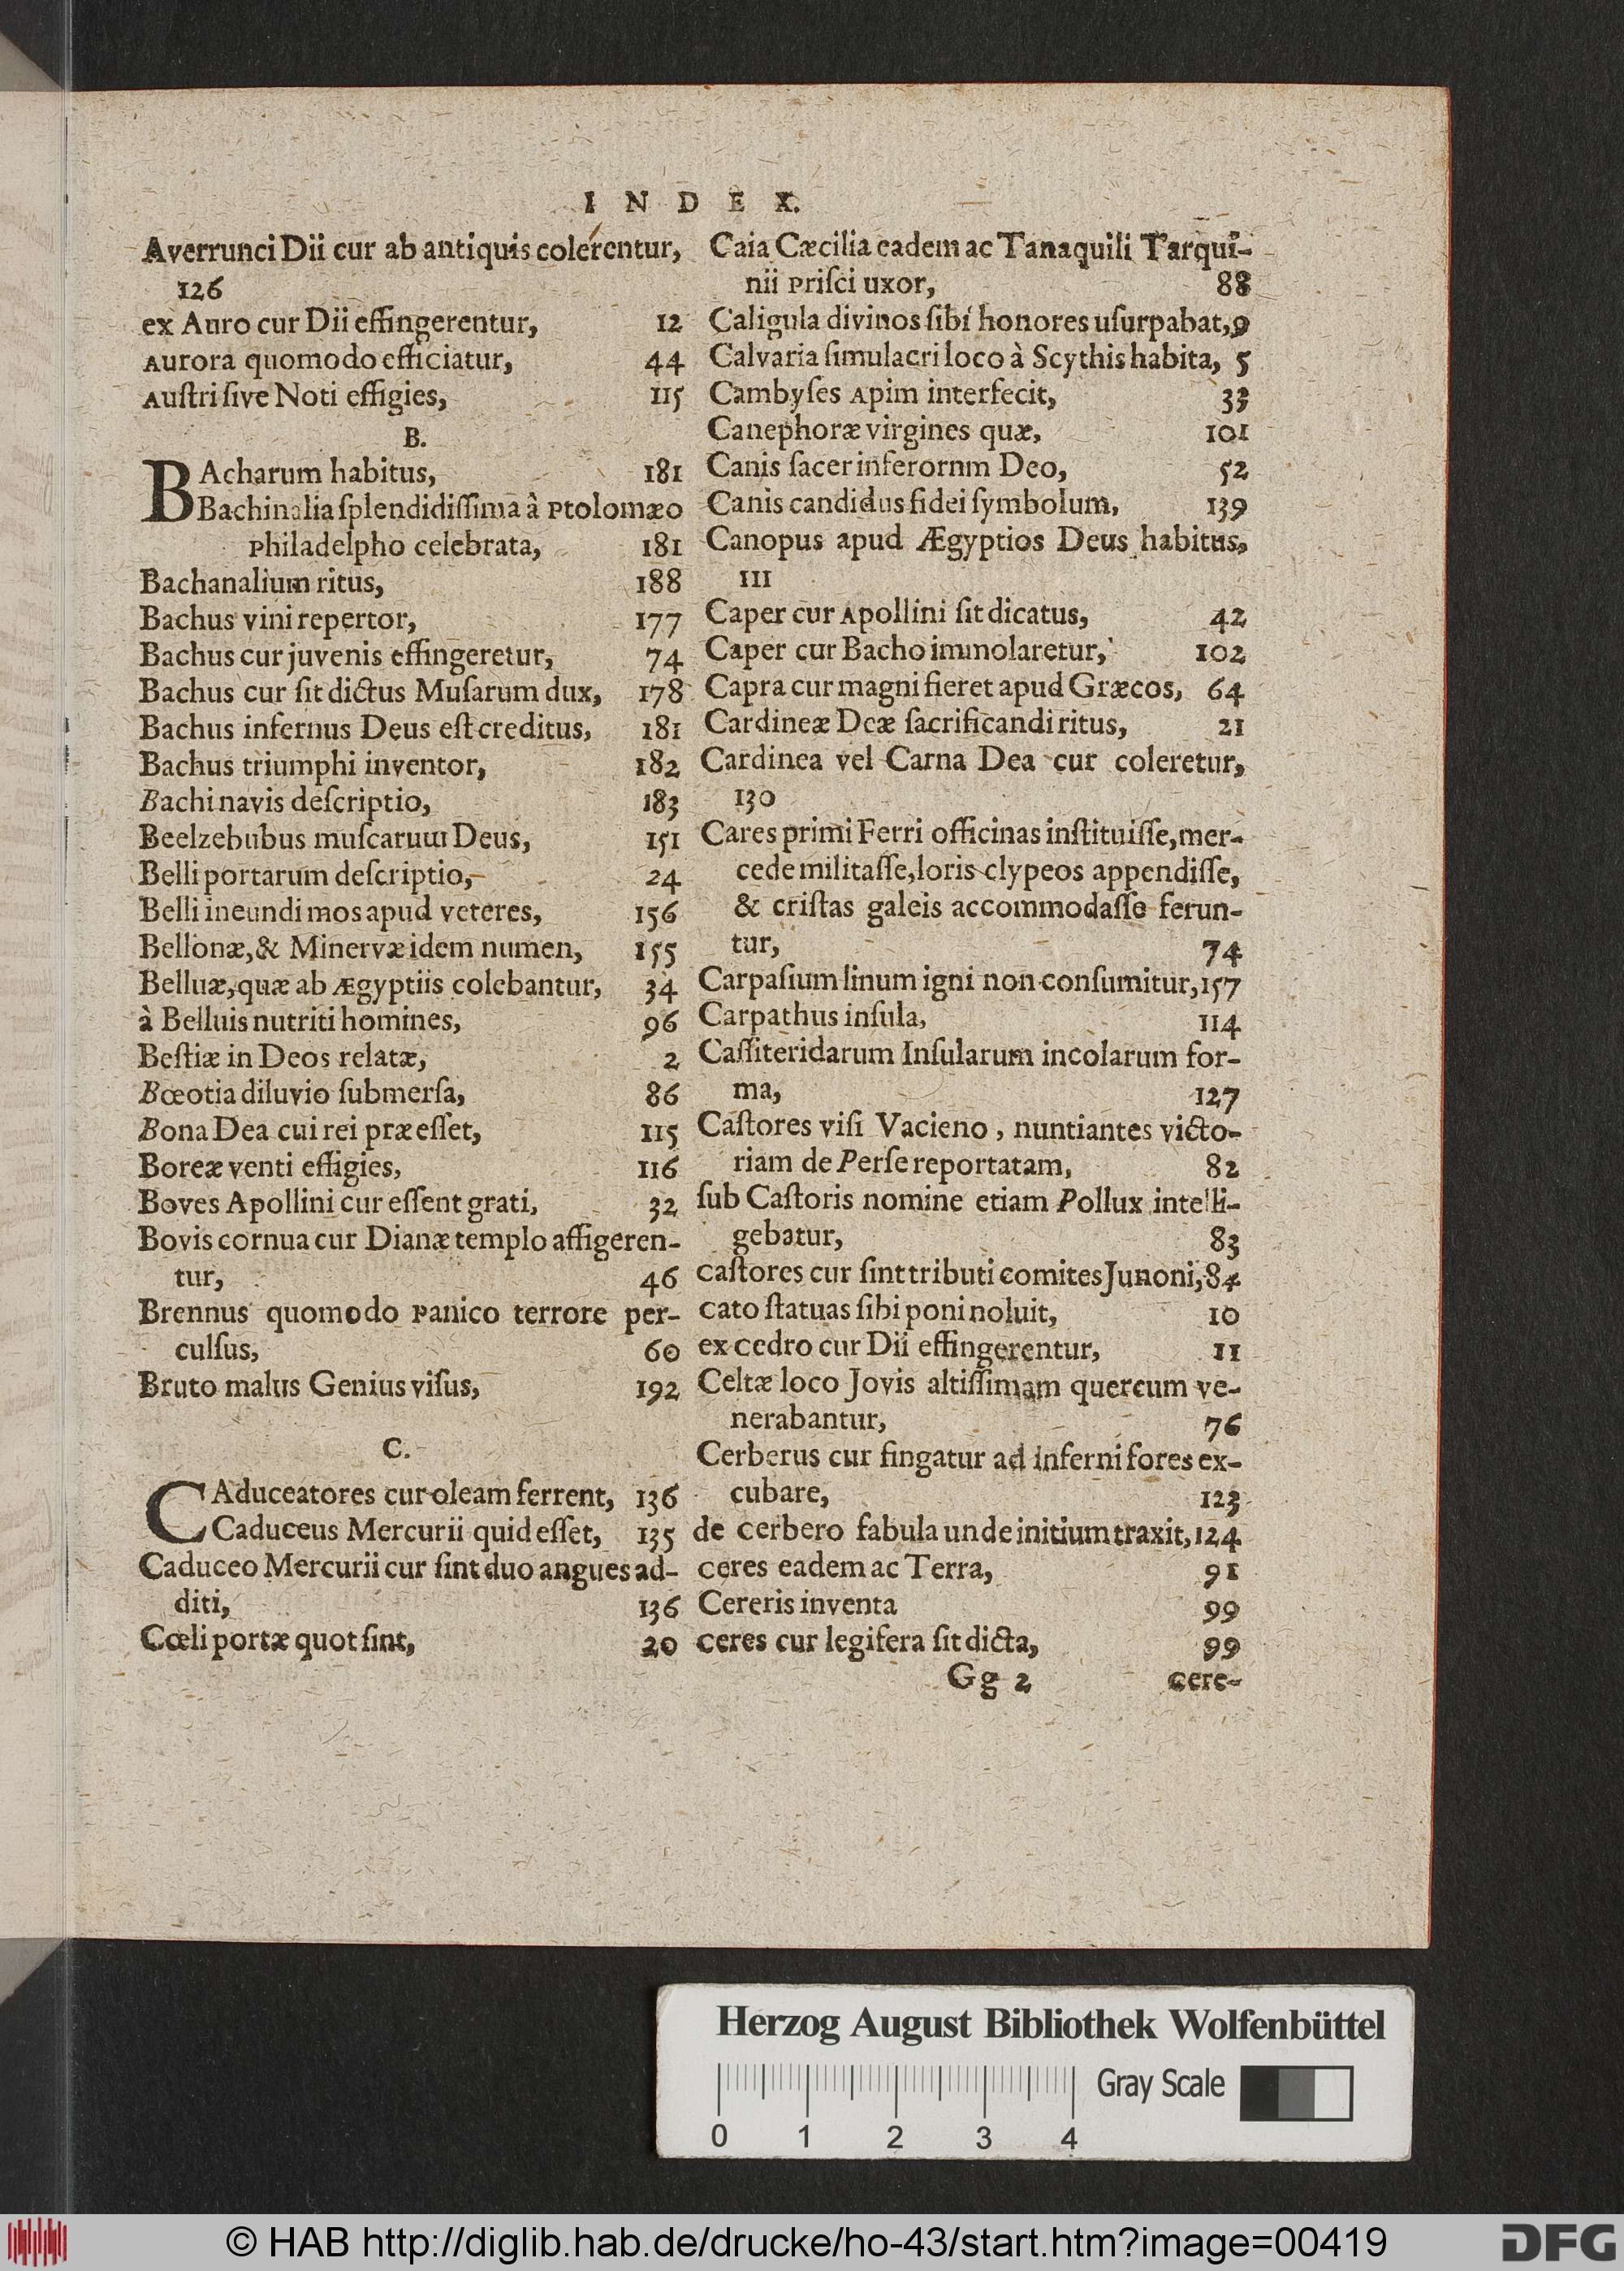 INDEX.
Averrunci Dii cur ab antiquis colerentur,
126
ex Auro cur Dii effingerentur, 12
Aurora quomodo efficiatur, 44
Auſtri ſive Noti effigies, 115
B.
BAcharum habitus, 181
Bachinalia ſplendidiſſima à Ptolomæo
Philadelpho celebrata, 181
Bachanalium ritus, 188
Bachus vini repertor, 177
Bachus cur juvenis effingeretur, 74
Bachus cur ſit dictus Muſarum dux, 178
Bachus infernus Deus eſt creditus, 181
Bachus triumphi inventor, 182
Bachi navis deſcriptio, 183
Beelzebubus muſcarum Deus, 151
Belli portarum deſcriptio, 24
Belli ineundi mos apud veteres, 156
Bellonæ, & Minervæ idem numen, 155
Belluæ, quæ ab Ægyptiis colebantur, 34
à Belluis nutriti homines, 96
Beſtiæ in Deos relatæ, 2
Bœotia diluvio ſubmerſa, 86
Bona Dea cui rei præeſſet, 115
Boreæ venti effigies, 116
Boves Apollini cur eſſent grati, 32
Bovis cornua cur Dianæ templo affigeren-
tur, 46
Brennus quomodo Panico terrore per-
culſus, 60
Bruto malus Genius viſus, 192
C.
CAduceatores cur oleam ferrent, 136
Caduceus Mercurii quid eſſet, 135
Caduceo Mercurii cur ſint duo angues ad-
diti, 136
Cœli portæ quot ſint, 20
Caia Cæcilia eadem ac Tanaquili Tarqui-
nii Priſci uxor, 88
Caligula divinos ſibi honores uſurpabat, 9
Calvaria ſimulacri loco à Scythis habita, 5
Cambyſes Apim interfecit, 33
Canephoræ virgines quæ, 101
Canis ſacer inferornm Deo, 52
Canis candidus fidei ſymbolum, 139
Canopus apud Ægyptios Deus habitus,
111
Caper cur Apollini ſit dicatus, 42
Caper cur Bacho immolaretur, 102
Capra cur magni fieret apud Græcos, 64
Cardineæ Deæ ſacrificandi ritus, 21
Cardinea vel Carna Dea cur coleretur,
130
Cares primi Ferri officinas inſtituiſſe, mer-
cede militaſſe, loris clypeos appendiſſe,
& criſtas galeis accommodaſſe ferun-
tur, 74
Carpaſium linum igni non conſumitur, 157
Carpathus inſula, 114
Caſſiteridarum Inſularum incolarum for-
ma, 127
Caſtores viſi Vacieno, nuntiantes victo-
riam de Perſe reportatam, 82
ſub Caſtoris nomine etiam Pollux intelli-
gebatur, 83
caſtores cur ſint tributi comites Junoni, 84
cato ſtatuas ſibi poni noluit, 10
ex cedro cur Dii effingerentur, 11
Celtæ loco Jovis altiſſimam quercum ve-
nerabantur, 76
Cerberus cur fingatur ad inferni fores ex-
cubare, 123
de cerbero fabula unde initium traxit, 124
ceres eadem ac Terra, 91
Cereris inventa 99
ceres cur legifera ſit dicta, 99
Gg 2 cere-
Herzog August Bibliothek Wolfenbüttel
Gray Scale
0 1 2 3 4
© HAB http://diglib.hab.de/drucke/ho-43/start.htm?image=00419
DFG